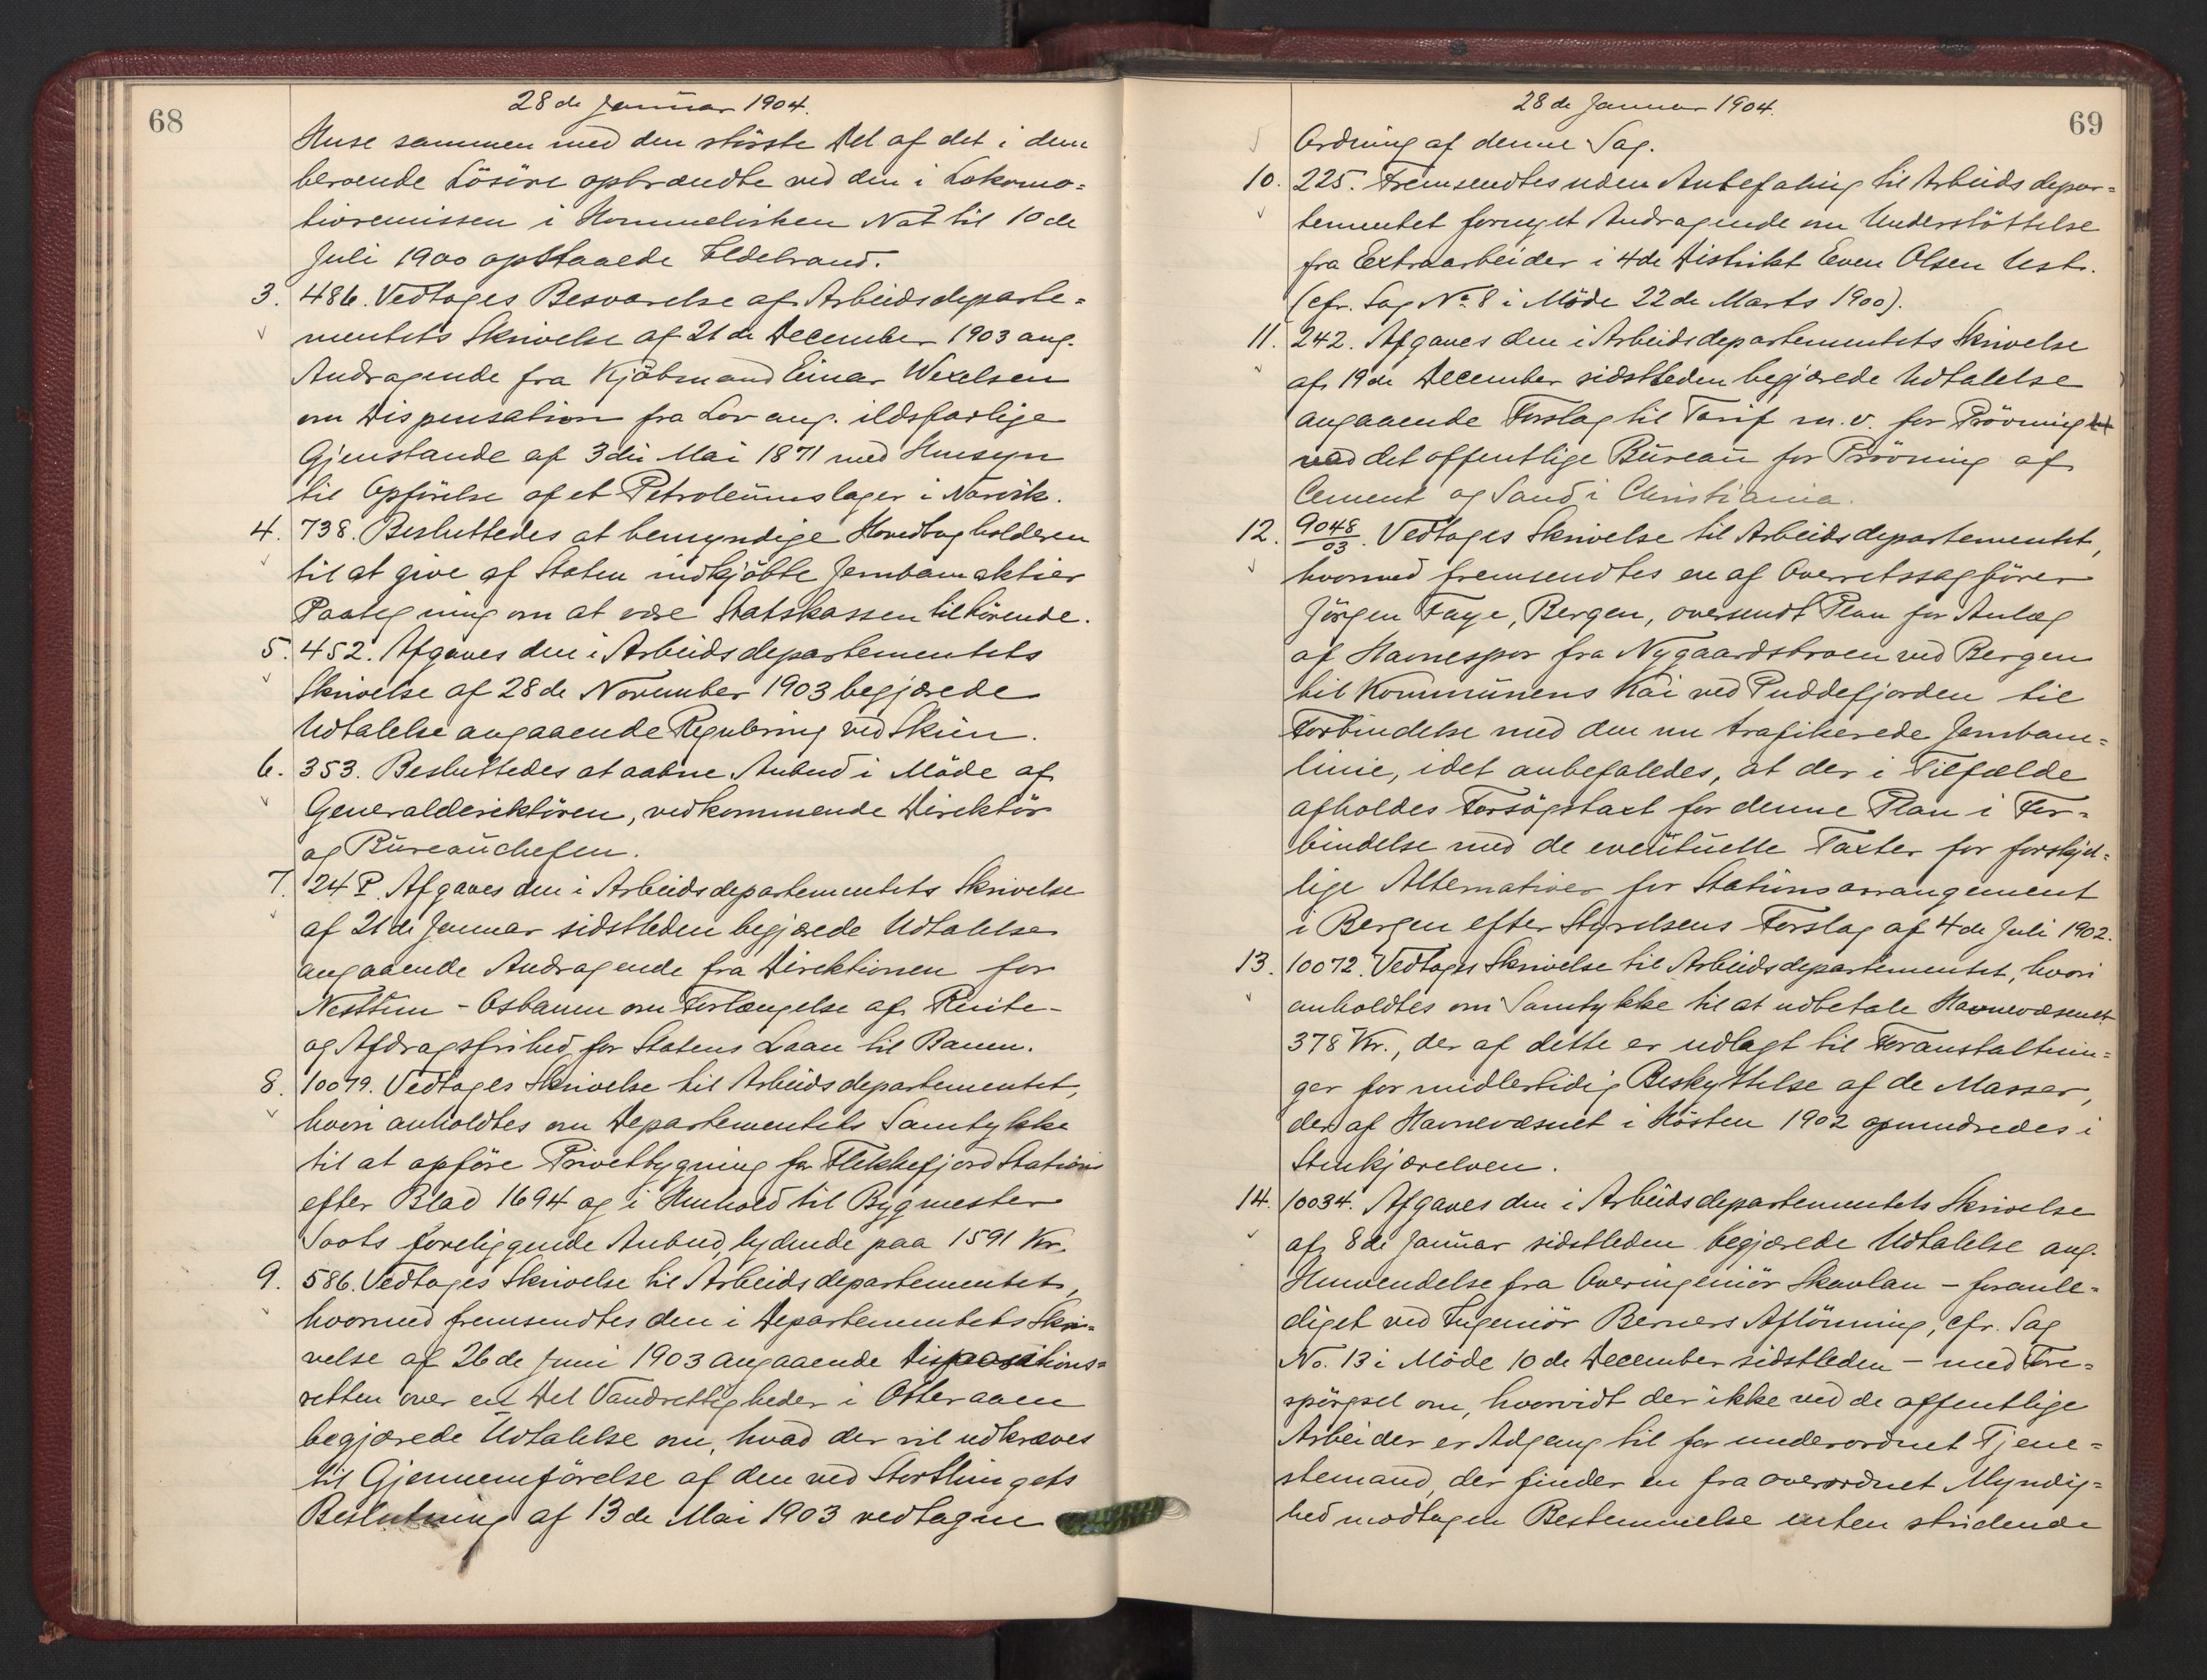 68
28de Januar 1904.
Huse sammen med den største Del af det i dem
beroende Løsøre opbrændte ved den i Lokomo=
tivremissen i Hommelviken Nat til 10de
Juli 1900 opstaaede Ildebrand.
3. 486. Vedtoges Besvarelse af Arbeidsdeparte=
mentets Skrivelse af 21de December 1903 ang.
Andragende fra Kjøbmand Einar Wexelsen
om Dispensation fra Lov ang. ildsfarlige
Gjenstande af 3die Mai 1871 med Hensyn
til Opførelse af et Petroleumslager i Narvik.
4. 738. Besluttedes at bemyndige Hovedbogholderen
til at give af Staten indkjøbte Jernbaneaktier
Paategning om at være Statskassen tilhørende.
5. 452. Afgaves den i Arbeidsdepartementets
Skrivelse af 28de November 1903 begjærede
Udtalelse angaaende Regulering ved Skien.
6. 353. Besluttedes at aabne Anbud i Møde af
Generaldirektøren, vedkommende Direktør
og Bureauchefen.
7. 24 P. Afgaves den i Arbeidsdepartementets Skrivelse
af 21de Januar sidstleden begjærede Udtalelse
angaaende Andragende fra Direktionen for
Nesttun-Osbanen om Forlængelse af Rente-
og Afdragsfrihed for Statens Laan til Banen.
8. 10079. Vedtoges Skrivelse til Arbeidsdepartementet,
hvori anholdtes om Departementets Samtykke
til at opføre Privetbygning for Flekkefjord Station
efter Blad 1694 og i Henhold til Bygmester
Soots foreliggende Anbud, lydende paa 1591 Kr.
9. 586. Vedtoges Skrivelse til Arbeidsdepartementet,
hvormed fremsendtes den i Departementets Skri=
velse af 26de Juni 1903 angaaende Dispositions=
retten over en Del Vandrettigheder i Otteraaen
begjærede Udtalelse om, hvad der vil udkræves
til Gjennemførelse af den ved Storthingets
Beslutning af 13de Mai 1903 vedtagne
69
28de Januar 1904.
Ordning af denne Sag.
10. 225. Fremsendtes uden Anbefaling til Arbeidsdepar=
tementet fornyet Andragende om Understøttelse
fra Extraarbeider i 4de Distrikt Even Olsen Ustr.
(cfr. Sag No. 8 i Møde 22de Marts 1900).
11. 242. Afgaves den i Arbeidsdepartementets Skrivelse
af 19de December sidstleden begjærede Udtalelse
angaaende Forslag til Tarif m.v. for Prøvning
ved det offentlige Bureau for Prøvning af
Cement og Sand i Christiania.
12. 9048/03. Vedtoges Skrivelse til Arbeidsdepartementet,
hvormed fremsendtes en af Overretssagfører
Jørgen Faye, Bergen, oversendt Plan for Anlæg
af Havnespor fra Nygaardsbroen ved Bergen
til Kommunens Kai ved Puddefjorden til
Forbindelse med den nu trafikerede Jernbane=
linie, idet anbefaledes, at der i Tilfælde
afholdes Forsøgstaxt for denne Plan i For=
bindelse med de eventuelle Taxter for forskjel=
lige Alternativer for Stationsarrangement
i Bergen efter Styrelsens Forslag af 4de Juli 1902.
13. 10072. Vedtoges Skrivelse til Arbeidsdepartementet, hvori
anholdtes om Samtykke til at udbetale Havnevæsenet
378 Kr., der af dette er udlagt til Foranstaltnin=
ger for midlertidig Beskyttelse af de Masser,
der af Havnevæsnet i Høsten 1902 opmudredes i
Stenkjærelven.
14. 10034. Afgaves den i Arbeidsdepartementets Skrivelse
af 8de Januar sidstleden begjærede Udtalelse ang.
Henvendelse fra Overingeniør Skavlan - foranle=
diget ved Ingeniør Berners Aflønning, cfr. Sag
No. 13 i Møde 10de December sidstleden - med Fore=
spørgsel om, hvorvidt der ikke ved de offentlige
Arbeider er Adgang til for underordnet Tjene=
stemand, der finder en fra overordnet Myndig=
hed modtagen Bestemmelse enten stridende